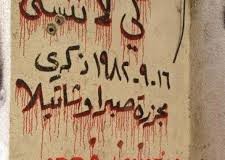 لكي لا ننسى
ذكرى ١٩٨٢.٩.١٦
مجزرة صبرا وشاتيلا